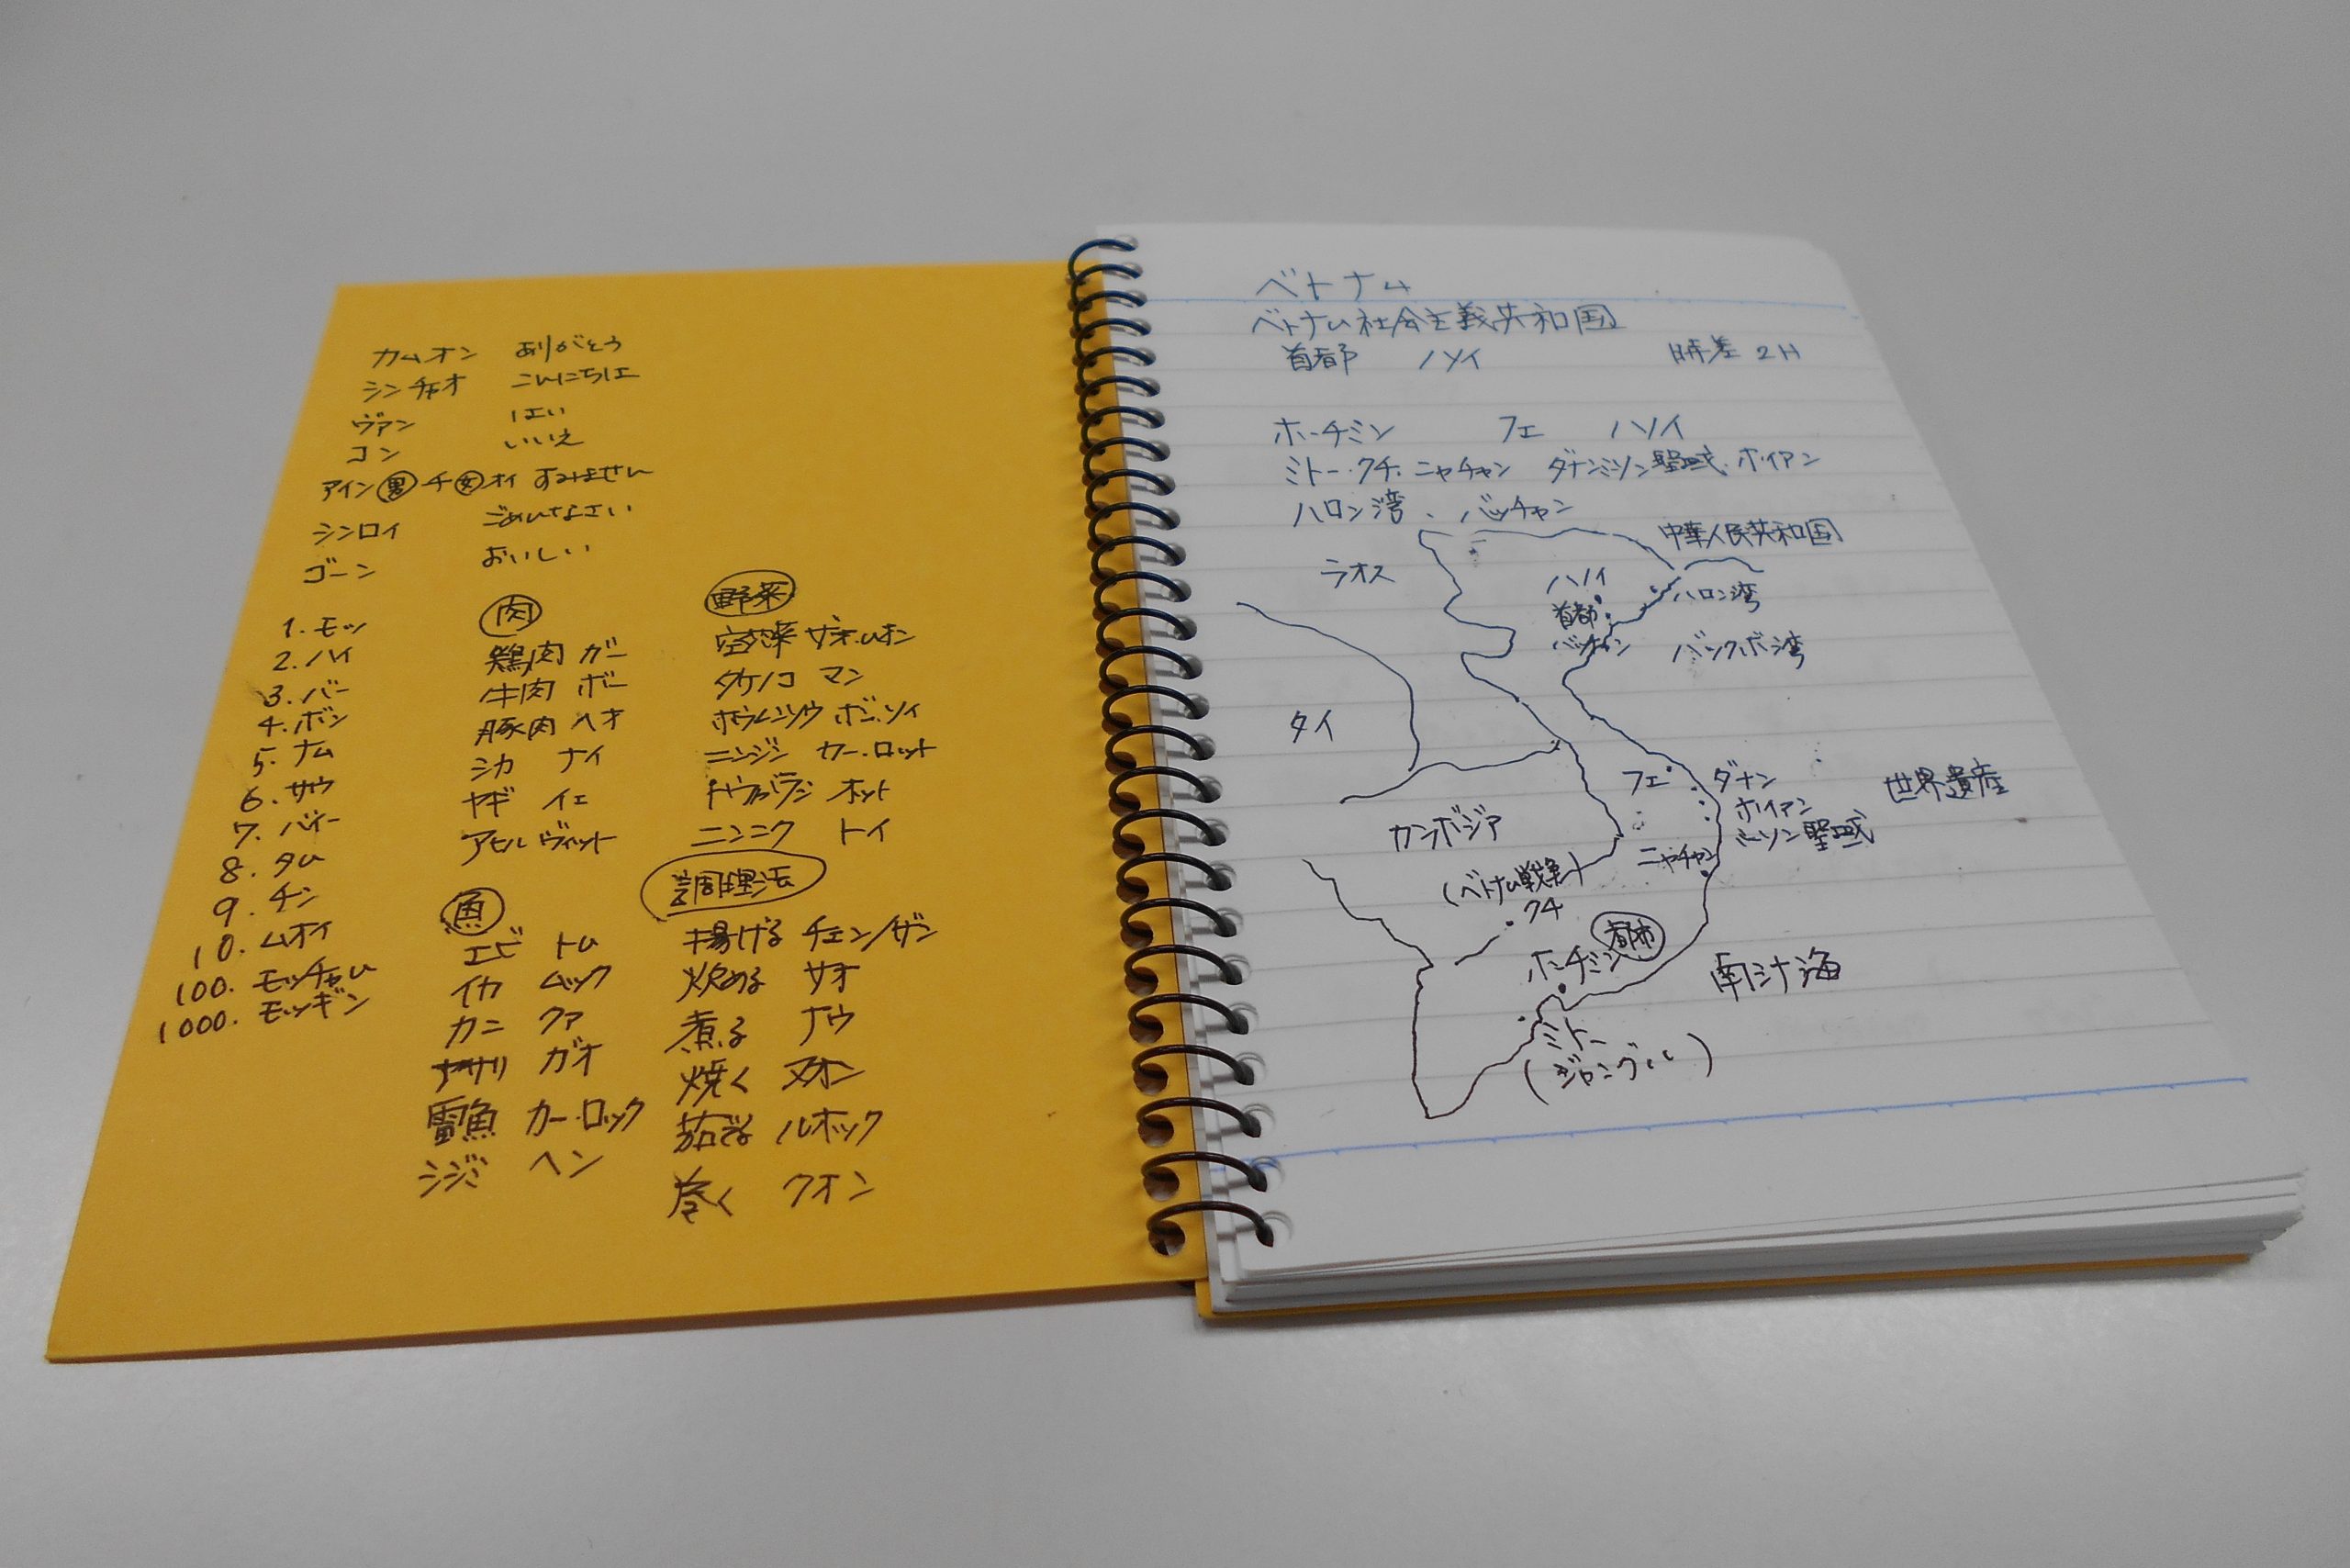 カムオン ありがとう
シンチャオ こんにちは
ヴァン はい
コン いいえ
アイン男 チ女 オイ すみません
シンロイ ごめんなさい
ゴーン おいしい
1. モッ
2. ハイ
3. バー
4. ボン
5. ナム
6. サウ
7. バイー
8. タム
9. チン
10. ムオイ
100. モッチャム
1000. モッギン
肉
鶏肉 ガー
牛肉 ボー
豚肉 ヘオ
シカ ナイ
ヤギ イェ
アヒル ヴィット
魚
エビ トム
イカ ムック
カニ クァ
アサリ ガオ
雷魚 カー・ロック
シジミ ヘン
野菜
空芯菜 ザオ・ムオン
タケノコ マン
ホウレンソウ ボン・ソイ
ニンジン カー・ロット
トウガラシ オット
ニンニク トイ
調理法
揚げる チェン/ザン
炒める サオ
煮る ナウ
焼く ヌオン
茹でる ルオック
巻く クオン
ベトナム
ベトナム社会主義共和国
首都 ハノイ 時差 2H
ホーチミン フエ ハノイ
ミトー・クチ・ニャチャン ダナンミソン聖域・ホイアン
ハロン湾 、バッチャン
中華人民共和国
ラオス
ハノイ
首都
ハロン湾
バッチャン
バックボ湾
タイ
フエ
ダナン
世界遺産
ホイアン
ミーソン聖域
カンボジア
ニャチャン
(ベトナム戦争)
クチ
都市
ホーチミン
南シナ海
ミトー
(ジャングル)